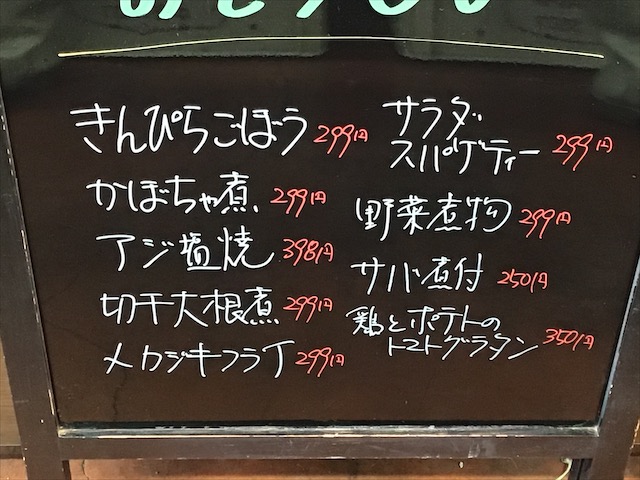 きんぴらごぼう 299円
かぼちゃ煮 299円
アジ塩焼 398円
切干大根煮 299円
メカジキフライ 299円
サラダ
スパゲティー 299円
野菜煮物 299円
サバ煮付 250円
鶏とポテトの
トマトグラタン 350円